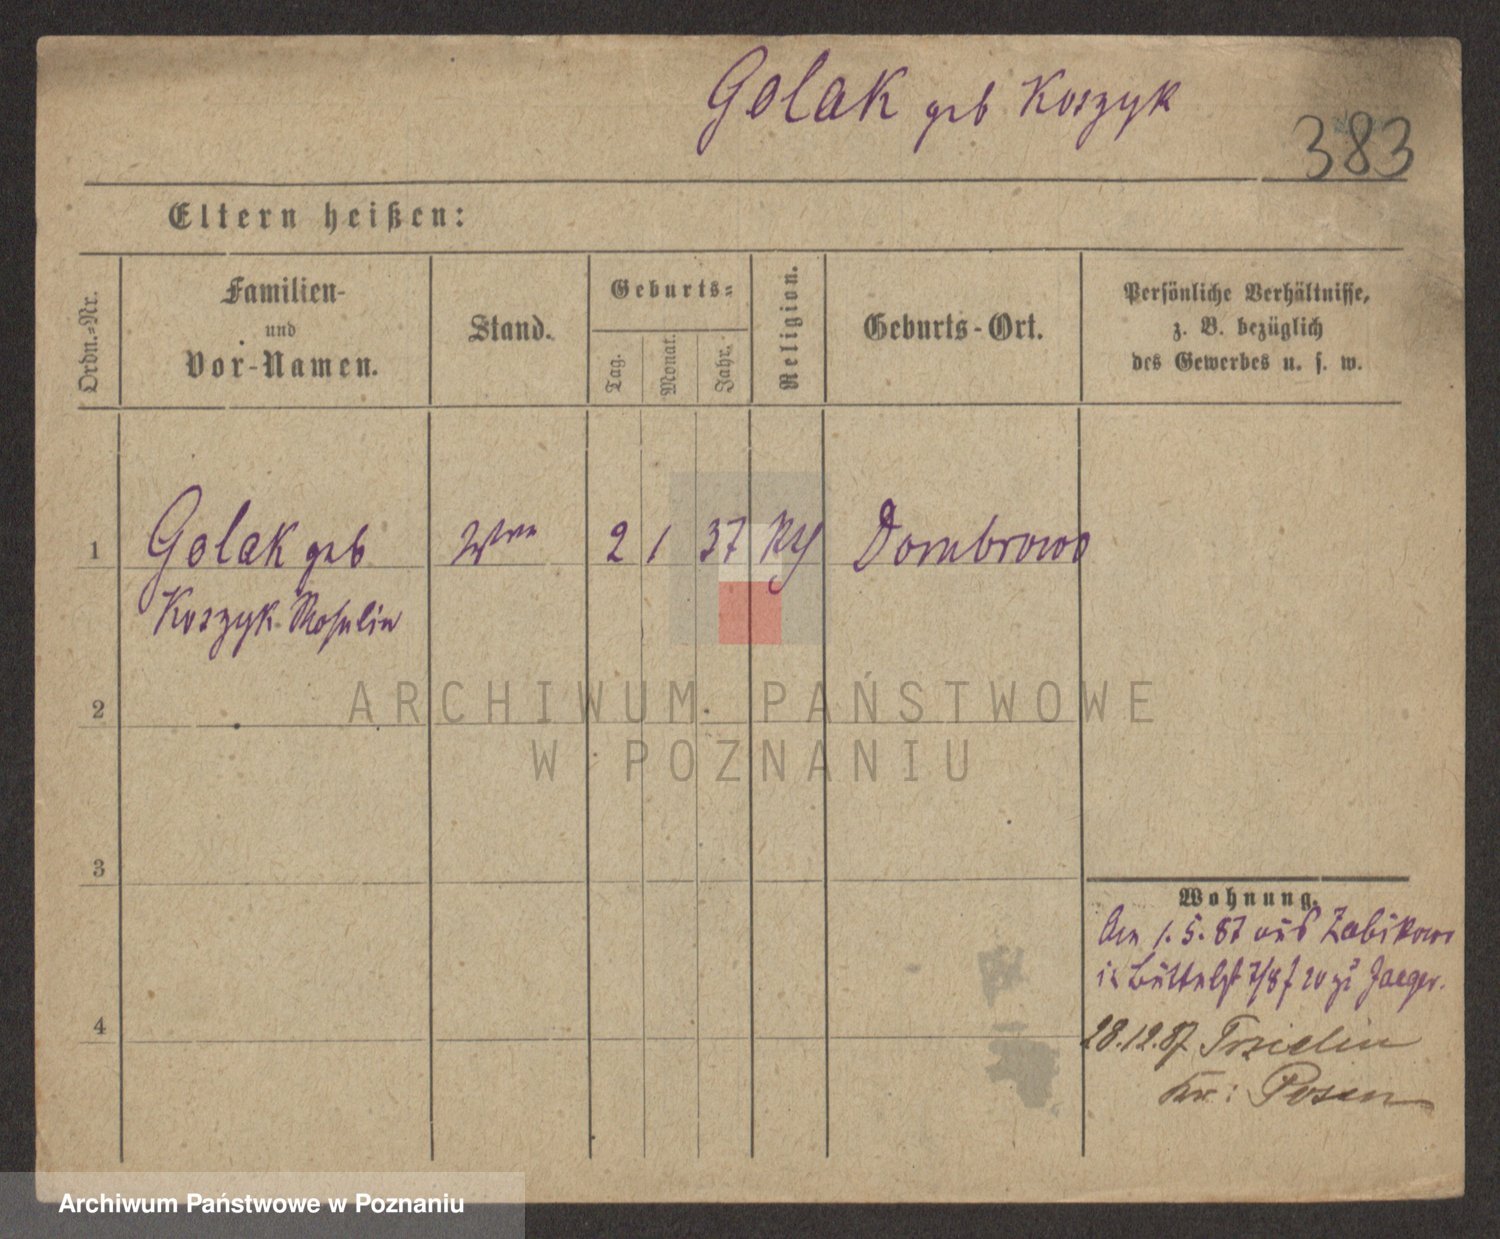 Golak geb Koszyk
383
Eltern heißen:
Ordn.-Nr.
Familien-
und
Vor-Namen.
Stand.
Geburts-
Tag.
Monat.
Jahr.
Religion.
Geburts-Ort.
Persönliche Verhältnisse,
z. B. bezüglich
des Gewerbes u. s. w.
1
Golak geb
Koszyk
Wwe
2
1
37
Dombrowo
ARCHIWUM PAŃSTWOWE
W POZNANIU
2
3
4
Wohnung.
Am 1. 5. 87 aus Zabikowo
Jaeger.
28.12.87
Kr: Posen
Archiwum Państwowe w Poznaniu